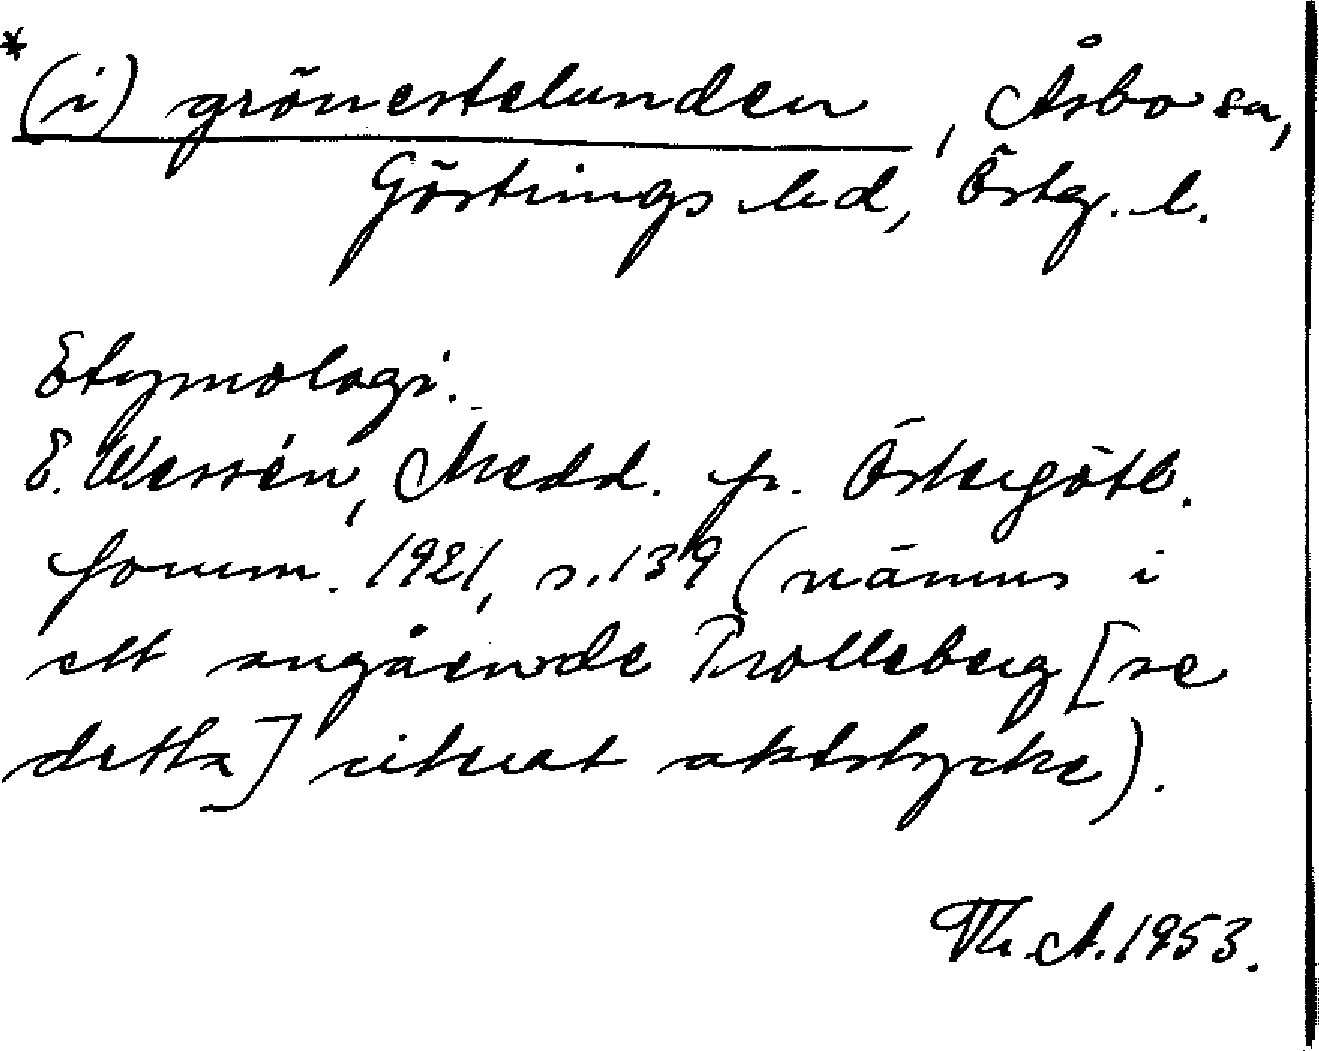 *(i) grönestelunden, Åsbo sn,
Göstrings hd, Östg. l.
Etymologi.
E. Wessén, Medd. fr. Östergötl.
fornm. 1921, s. 139 (nämns i
ett angående Trolleberg [se
detta] citerat aktstycke).
Th. A. 1953.